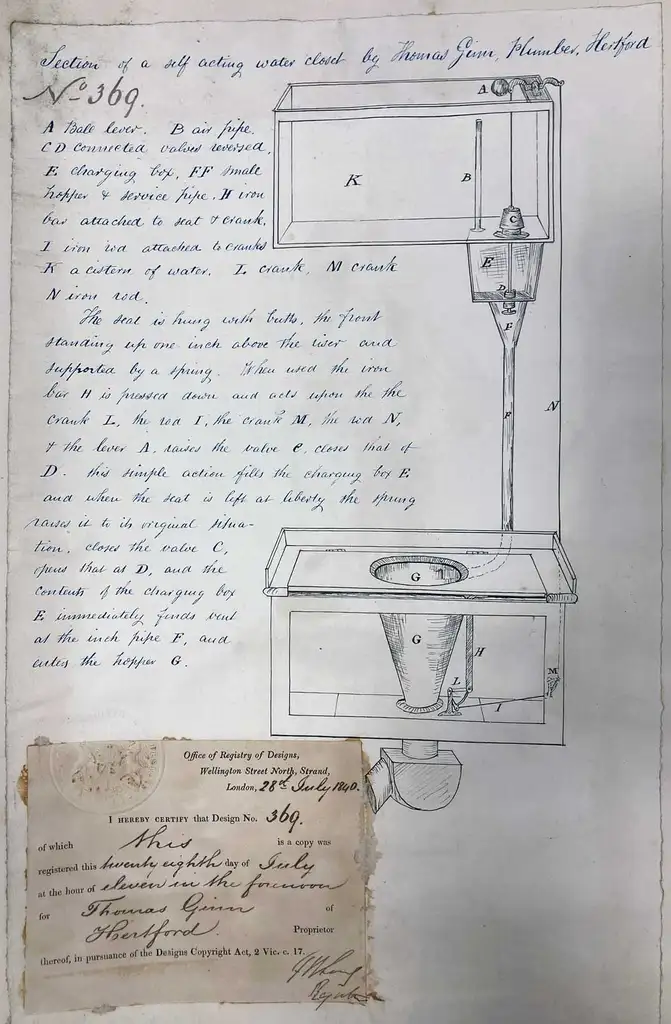 Section of a self acting water closet by Thomas Ginn, Plumber, Hertford
No. 369.
A Bale lever. B air pipe.
C D connected valves reversed.
E charging box, FF small
hopper & service pipe, H iron
bar attached to seat & crank.
I iron rod attached to cranks
K a cistern of water. L crank, M crank
N iron rod.
The seat is hung with butts, the front
standing up one inch above the riser and
supported by a spring. When used the iron
bar H is pressed down and acts upon the the
crank L, the rod I, the crank M, the rod N,
& the lever A, raises the valve C, closes that of
D. this simple action fills the charging box E
and when the seat is left at liberty the spring
raises it to its original situa-
tion, closes the valve C,
opens that at D, and the
contents of the charging box
E immediately finds vent
at the inch pipe F, and
enters the hopper G.
A
B
K
C
E
D
F
F
N
G
G
H
L
M
I
Office of Registry of Designs,
Wellington Street North, Strand,
London, 28th July 1840.
I HEREBY CERTIFY that Design No. 369.
of which this is a copy was
registered this twenty eighth day of July
at the hour of eleven in the forenoon
for Thomas Ginn of
Hertford Proprietor
thereof, in pursuance of the Designs Copyright Act, 2 Vic. c. 17.